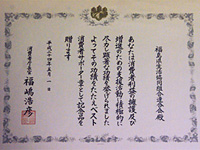 福島県生活協同組合連合会殿
あなたは消費者利益の擁護及び
増進のための支援活動に積極的に
尽力し顕著な功績を挙げられました
よってその功績をたたえベスト
消費者サポーター章として記念品を
贈ります
平成二十四年五月一日
消費者庁長官 福嶋浩彦